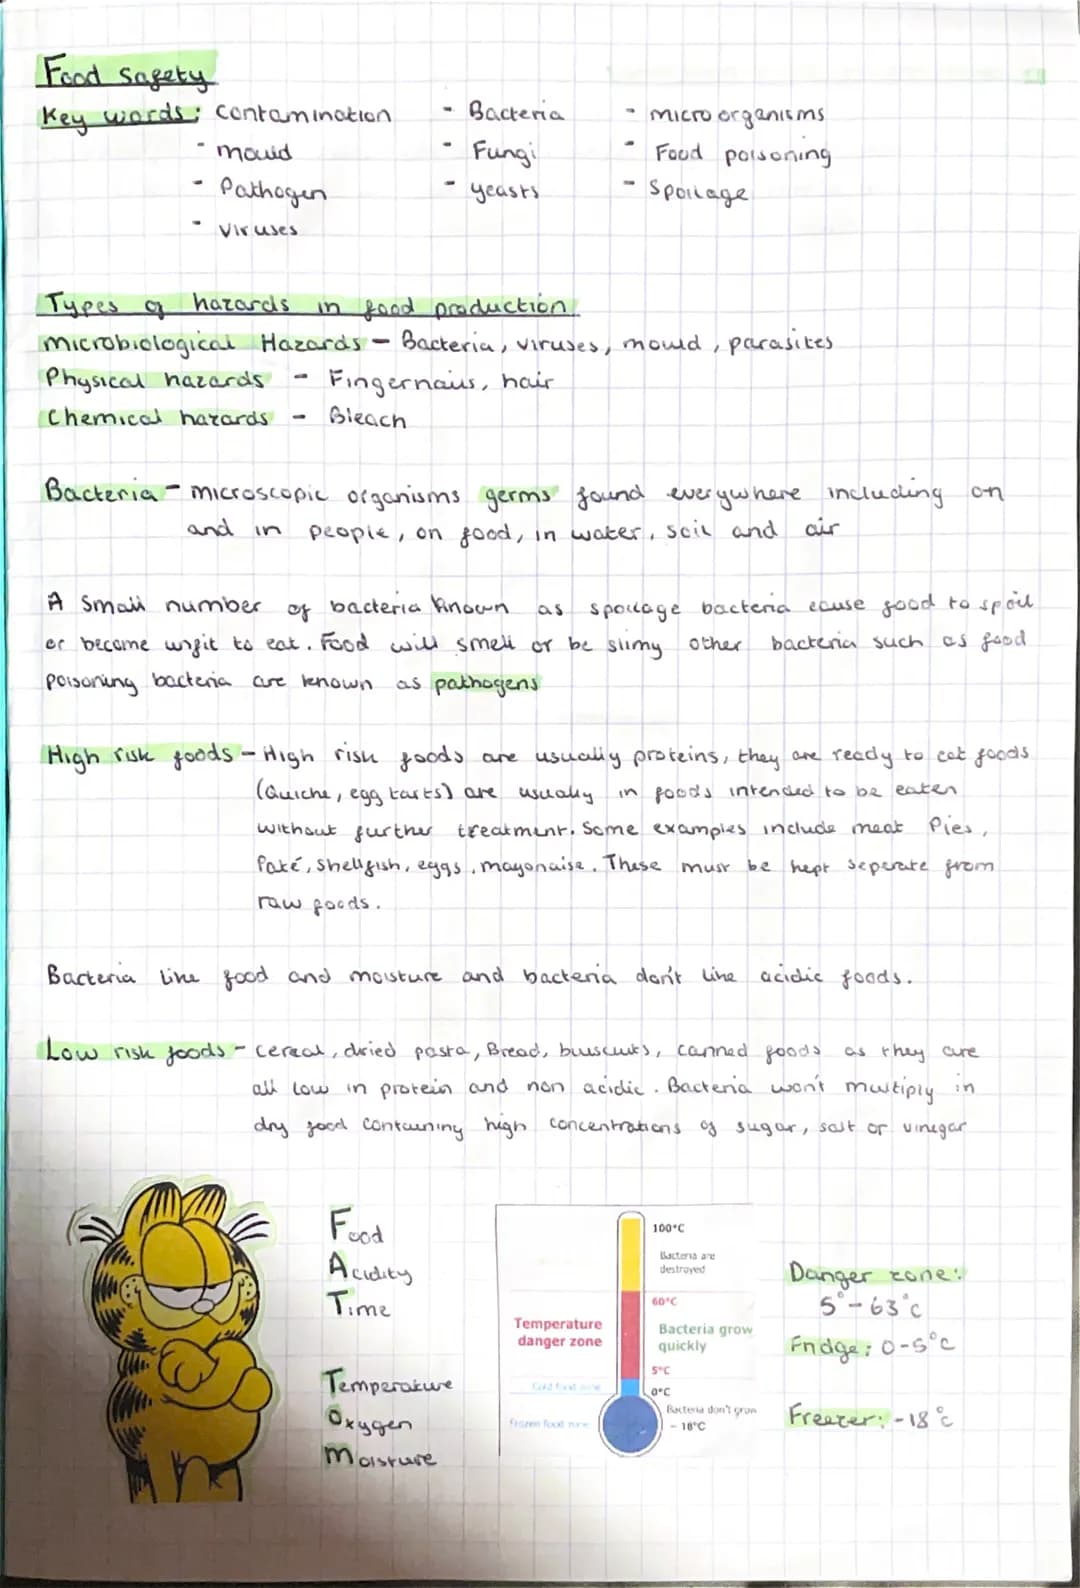 Food Safety
Key words: contamination - Bacteria - microorganisms
- mould - Fungi - Food poisoning
- Pathogen - yeasts - Spoilage
- viruses
Types of hazards in food production
microbiological Hazards - Bacteria, viruses, mould, parasites
Physical hazards - Fingernails, hair
Chemical hazards - Bleach
Bacteria - microscopic organisms germs found everywhere including on
and in people, on food, in water, soil and air
A small number of bacteria known as spoilage bacteria cause food to spoil
or become unfit to eat. Food will smell or be slimy other bacteria such as food
poisoning bacteria are known as pathogens
High risk foods - High risk foods are usually proteins, they are ready to eat foods
(Quiche, egg tarts) are usually in foods intended to be eaten
without further treatment. Some examples include meat Pies,
Paté, shellfish, eggs, mayonaise. These must be kept seperate from
raw foods.
Bacteria like food and moisture and bacteria don't like acidic foods.
Low risk foods - cereal, dried pasta, Bread, biuscuits, canned foods as they are
all low in protein and non acidic. Bacteria won't multiply in
dry food containing high concentrations of sugar, salt or vinegar
Food
Acidity
Time
Temperature
Oxygen
Moisture
100°C
Bacteria are
destroyed
60°C
Temperature
danger zone
Bacteria grow
quickly
5°C
Cold food zone
0°C
Bacteria don't grow
Frozen food zone
- 18°C
Danger zone:
5° - 63°c
Fridge: 0-5°c
Freezer: -18°c